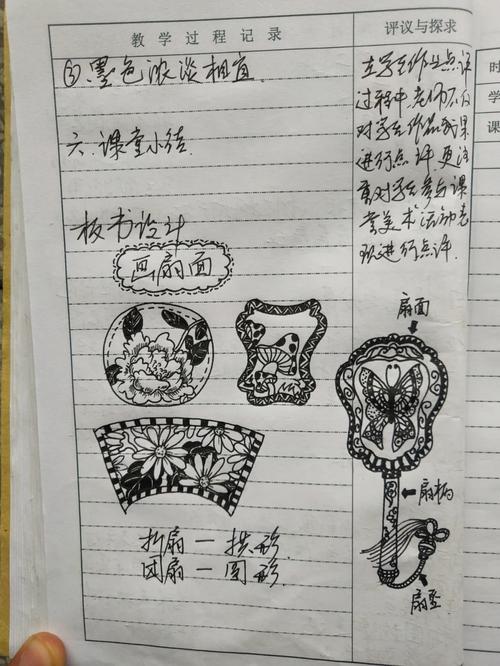 教学过程记录
③墨色浓淡相宜
六.课堂小结.
板书设计
画扇面
折扇一拱形.
团扇一圆形.
评议与探求
在学生作业点评
过程中,老师不仅
对学生作品效果
进行点评,更注
重对学生参与课
堂美术活动表
现进行点评.
扇面
扇柄
扇坠
时
学
课